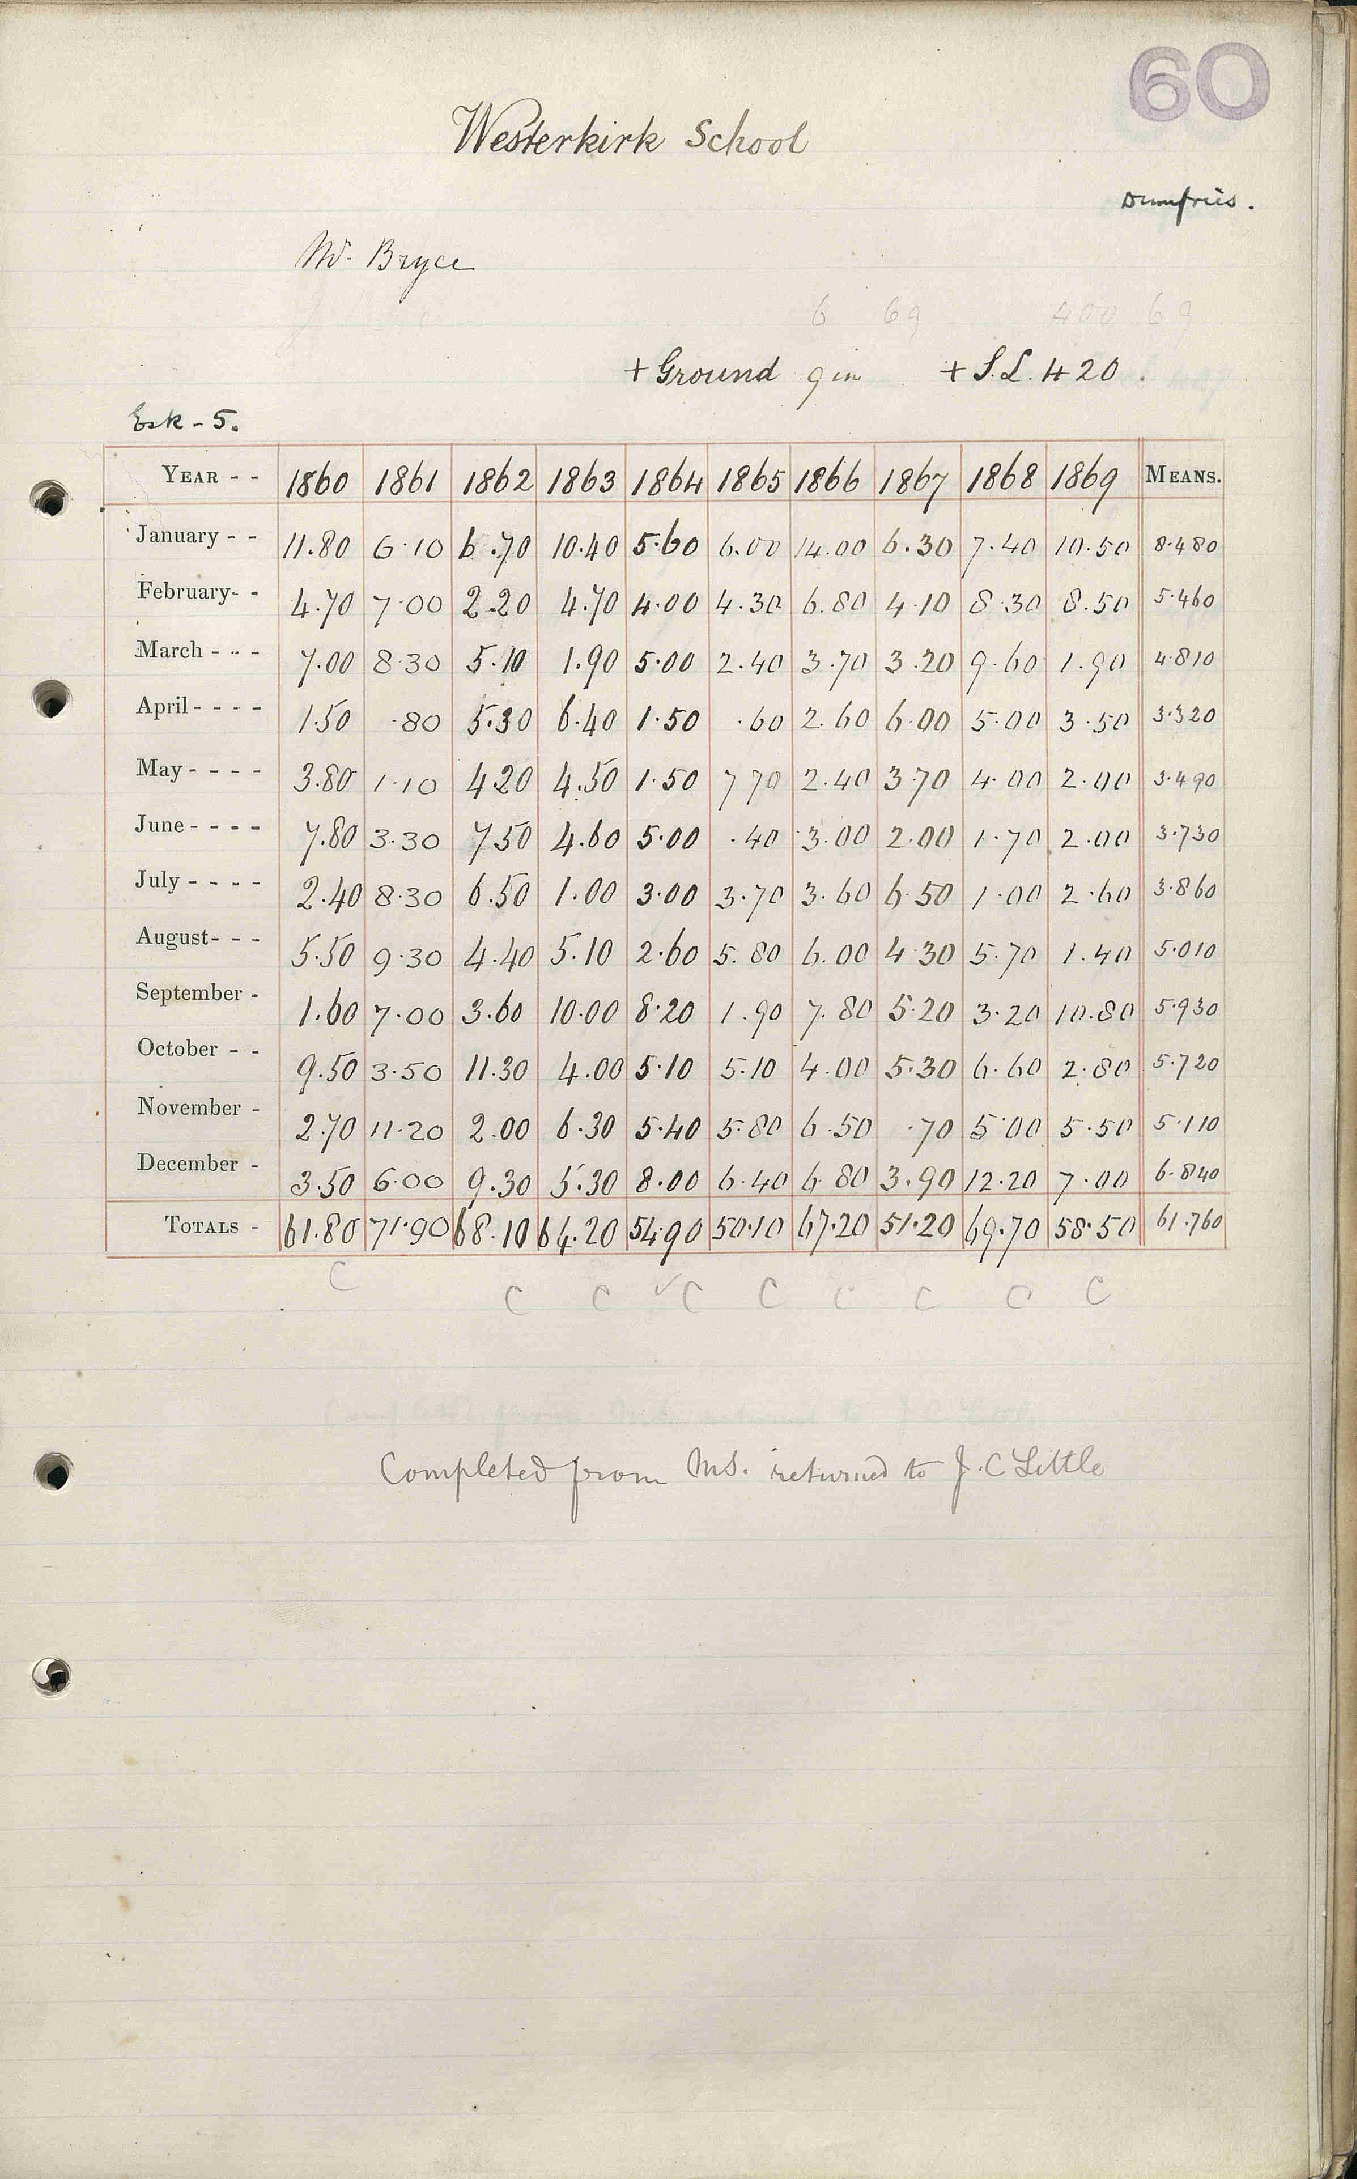 60
Westerkirk School
Dumfries.
Mr. Bryce
6 69 400 69
+ Ground 9 in + S.L. 420.
Esk - 5.
YEAR - - 1860 1861 1862 1863 1864 1865 1866 1867 1868 1869 MEANS.
January - - 11.80 6.10 6.70 10.40 5.60 6.00 14.00 6.30 7.40 10.50 8.480
February- - 4.70 7.00 2.20 4.70 4.00 4.30 6.80 4.10 8.30 8.50 5.460
March - - - 7.00 8.30 5.10 1.90 5.00 2.40 3.70 3.20 9.60 1.90 4.810
April - - - - 1.50 .80 5.30 6.40 1.50 .60 2.60 6.00 5.00 3.50 3.320
May - - - - 3.80 1.10 4.20 4.50 1.50 7.70 2.40 3.70 4.00 2.00 3.490
June - - - - 7.80 3.30 7.50 4.60 5.00 .40 3.00 2.00 1.70 2.00 3.730
July - - - - 2.40 8.30 6.50 1.00 3.00 3.70 3.60 6.50 1.00 2.60 3.860
August- - - 5.50 9.30 4.40 5.10 2.60 5.80 6.00 4.30 5.70 1.40 5.010
September - 1.60 7.00 3.60 10.00 8.20 1.90 7.80 5.20 3.20 10.80 5.930
October - - 9.50 3.50 11.30 4.00 5.10 5.10 4.00 5.30 6.60 2.80 5.720
November - 2.70 11.20 2.00 6.30 5.40 5.80 6.50 .70 5.00 5.50 5.110
December - 3.50 6.00 9.30 5.30 8.00 6.40 6.80 3.90 12.20 7.00 6.840
TOTALS - 61.80 71.90 68.10 64.20 54.90 50.10 67.20 51.20 69.70 58.50 61.760
C C C ✓C C C C C C
Completed from MS. returned to J. C Little